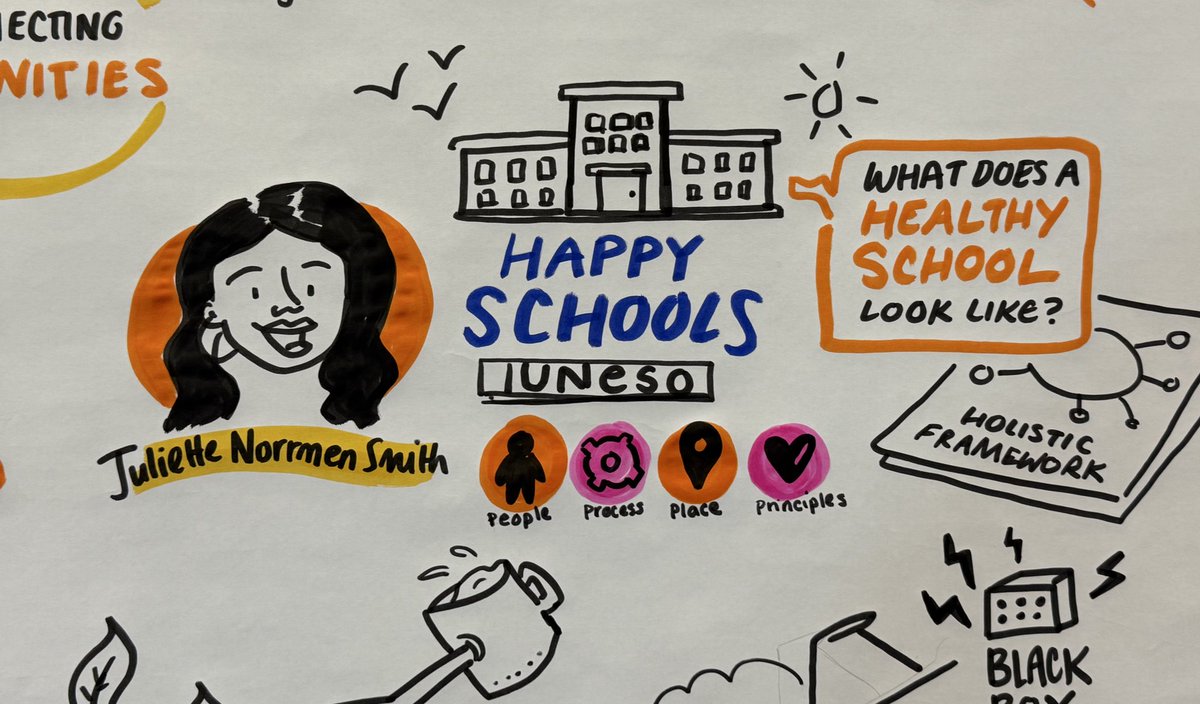 NECTING
NITIES
HAPPY
SCHOOLS
IUNesO
WHAT DOES A
HEALTHY
SCHOOL
LOOK LIKE?
Juliette Norrmen Smith
People
Process
Place
Principles
HOLISTIC
FRAMEWORK
BLACK
BOX